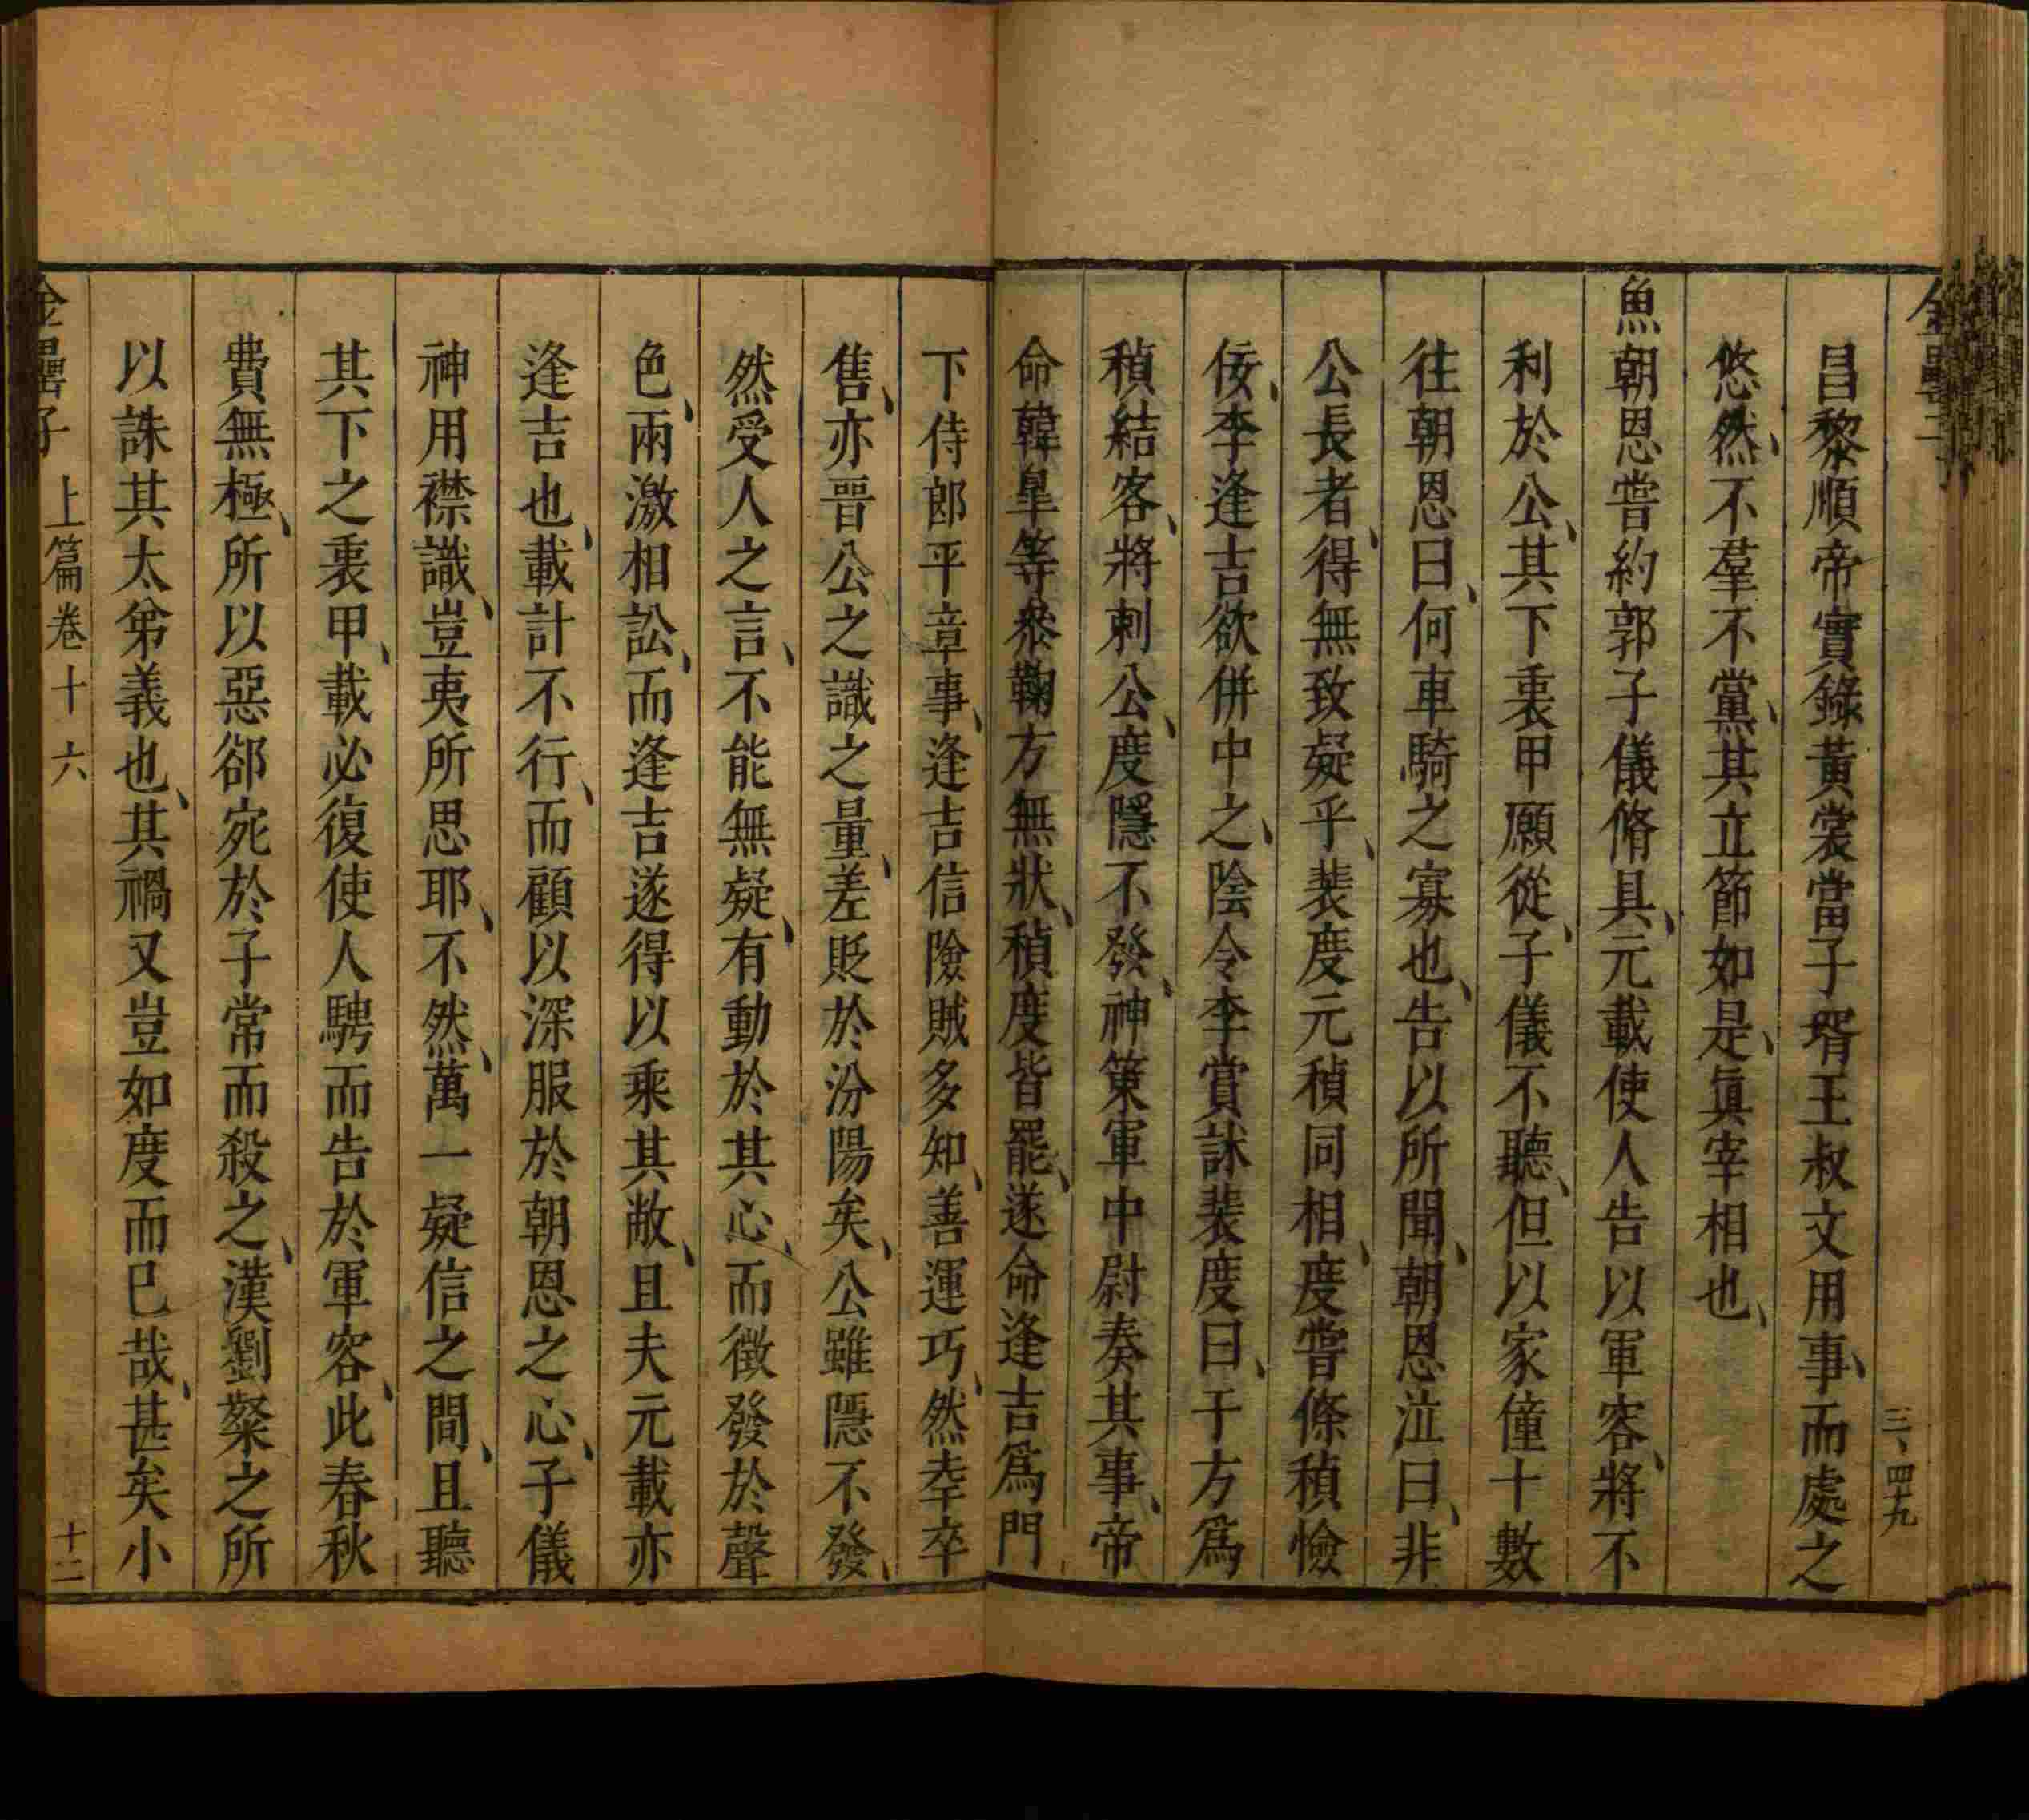 金罍子
三、四十九
昌黎順帝實錄黃裳當子壻王叔文用事、而處之
悠然、不羣不黨、其立節如是、眞宰相也、
魚朝恩嘗約郭子儀脩具、元載使人告以軍容、將不
利於公、其下裏甲願從、子儀不聽、但以家僮十數
往朝恩曰、何車騎之寡也、告以所聞、朝恩泣曰、非
公長者、得無致疑乎、裴度元稹同相、度嘗條稹憸
佞、李逢吉欲併中之、陰令李賞訹裴度曰、于方爲
稹結客、將刺公、度隱不發、神策軍中尉奏其事、帝
命韓皐等叅鞠方無狀、稹度皆罷、遂命逢吉爲門
下侍郎平章事、逢吉信險賊多知、善運巧、然幸卒
售、亦晉公之識之量、差貶於汾陽矣、公雖隱不發、
然受人之言、不能無疑、有動於其心、而徵發於聲
色、兩激相訟、而逢吉遂得以乘其敝、且夫元載亦
逢吉也、載計不行、而顧以深服於朝恩之心、子儀
神用襟識、豈夷所思耶、不然、萬一疑信之間、且聽
其下之裏甲、載必復使人騁而告於軍容、此春秋
費無極、所以惡郤宛於子常而殺之、漢劉棻之所
以誅其太弟義也、其禍又豈如度而已哉、甚矣小
金罍子
上篇卷十六
十二